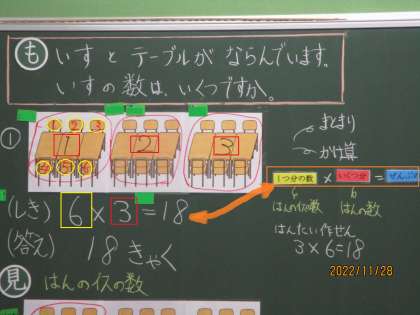 も いすとテーブルが ならんでいます。
いすの数は、いくつですか。
①
1 2 3
4 5 6
1 2 3
まとまり
かけ算
1つ分の数 × いくつ分 = ぜんぶの
6
はんのイスの数 はんの数
(しき) 6×3=18
はんたい作せん
3×6=18
(答え) 18きゃく
見 はんのイスの数
2022/11/28